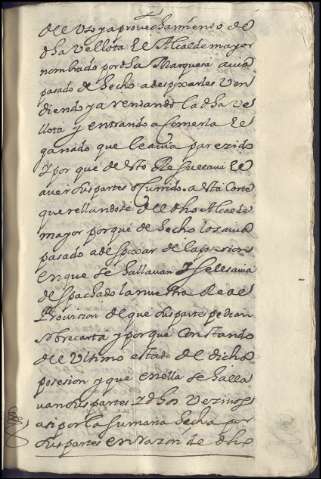 del Uso y aprovechamiento de
dha vellota El Alcalde mayor
nombrado por dha Marquesa avia
pasado de hecho a despoxarles Ven
diendo y arrendando la dha ve
llota y entrando a Comerla El
ganado que le avia parezido
y por que de esto Resultava El
aver sus partes ocurrido a esta Corte
querellandose del dho Alcalde
mayor porque de hecho los avia
pasado a despoxar de la posesion
en que se hallavan Y se les avia
despachado la nuestra Real
Provision de que sus partes pedian
sobrecarta y porque Constando
del Ultimo estado de dicha
posesion y que en ella se halla
van sus partes y dhos Vezinos
asi por la sumaria hecha por
sus partes en razon de dho